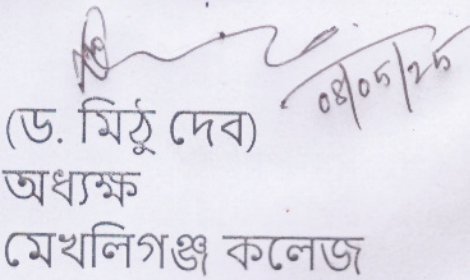 08/05/25
(ড. মিঠু দেব)
অধ্যক্ষ
মেখলিগঞ্জ কলেজ